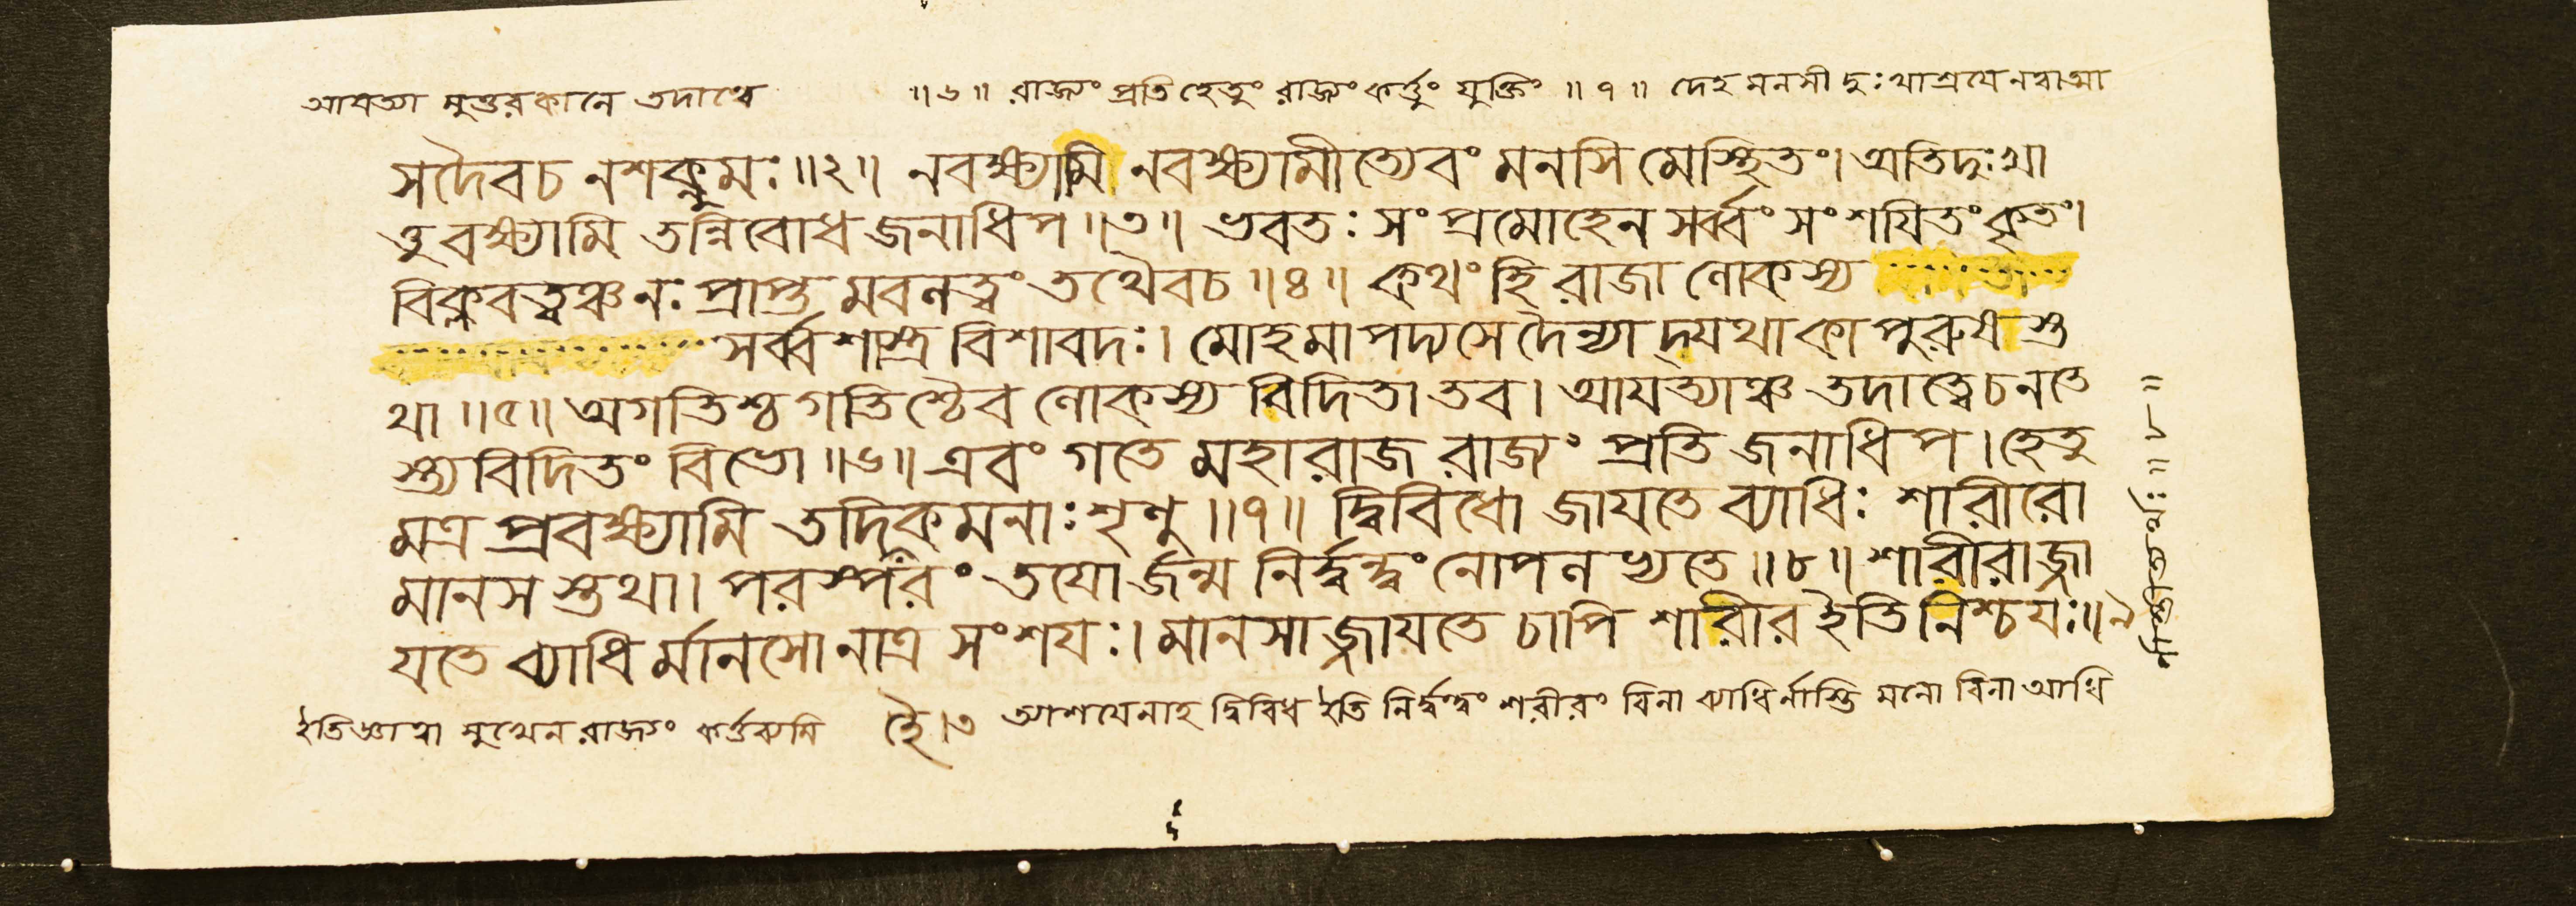 আযত্যা মুত্তরকালে তদাত্বে ॥৬॥ রাজ্যং প্রতি হেতুং রাজ্যং কর্ত্তুং যুক্তিং ॥৭॥ দেহ মনসী দুঃখাশ্রযে
সদৈবচ নশক্নুমঃ॥২॥ নবক্ষ্যামি নবক্ষ্যামীত্যেবং মনসি মেস্থিতং। অতিদুঃখা
ত্তুবক্ষ্যামি তন্নিবোধ জনাধিপ॥৩॥ ভবতঃ সংপ্রমোহেন সর্ব্বং সংশযিতংকৃতং।
বিক্লবত্বঞ্চ নঃ প্রাপ্ত মবলত্বং তথৈবচ॥৪॥ কথং হি রাজা লোকস্য
সর্ব্বশাস্ত্র বিশাবদঃ। মোহমাপদ্যসে দৈন্যাদ্যথা কাপুরুষ স্ত
থা॥৫॥ অগতিশ্চ গতিশ্চৈব লোকস্য বিদিতা তব। আযত্যাঞ্চ তদাত্বেচ নতে
স্ত্যবিদিতং বিভো॥৬॥ এবং গতে মহারাজ রাজ্যং প্রতি জনাধিপ। হেতু
মত্র প্রবক্ষ্যামি তদিকমনাঃ শৃণু॥৭॥ দ্বিবিধো জাযতে ব্যাধিঃ শারীরো
মানস স্তথা। পরস্পরং তযোর্জন্ম নির্দ্বন্দ্বং নোপলভ্যতে॥৮॥ শারীরাজ্জা
যতে ব্যাধি র্মানসো নাত্র সংশযঃ। মানসাজ্জাযতে চাপি শারীর ইতি নিশ্চযঃ॥৯
ইতিজ্ঞাত্বা সুখেন রাজ্যং আশযেনাহ দ্বিবিধ ইতি নির্দ্বন্দ্বং শরীরং বিনা ব্যাধির্নাস্তি মনো বিনা আধি
র্নাস্তীতিভাবঃ॥৮॥